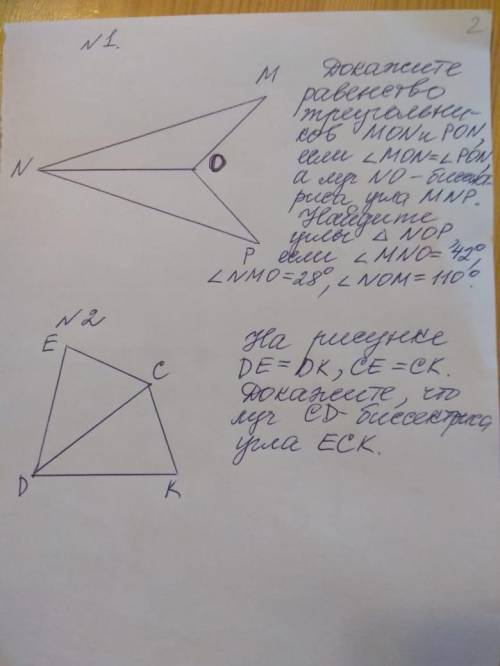 2
N1.
M
N
O
P
Докажите
равенство
треугольни-
ков MON и PON,
если ∠MON=∠PON,
а луч NO - биссек
риса угла MNP.
Найдите
углы △ NOP
если ∠MNO= 42°,
∠NMO=28°, ∠NOM=110°.
N2
E
C
D
K
На рисунке
DE=DK, CE=CK.
Докажите, что
луч CD- биссектриса
угла ECK.